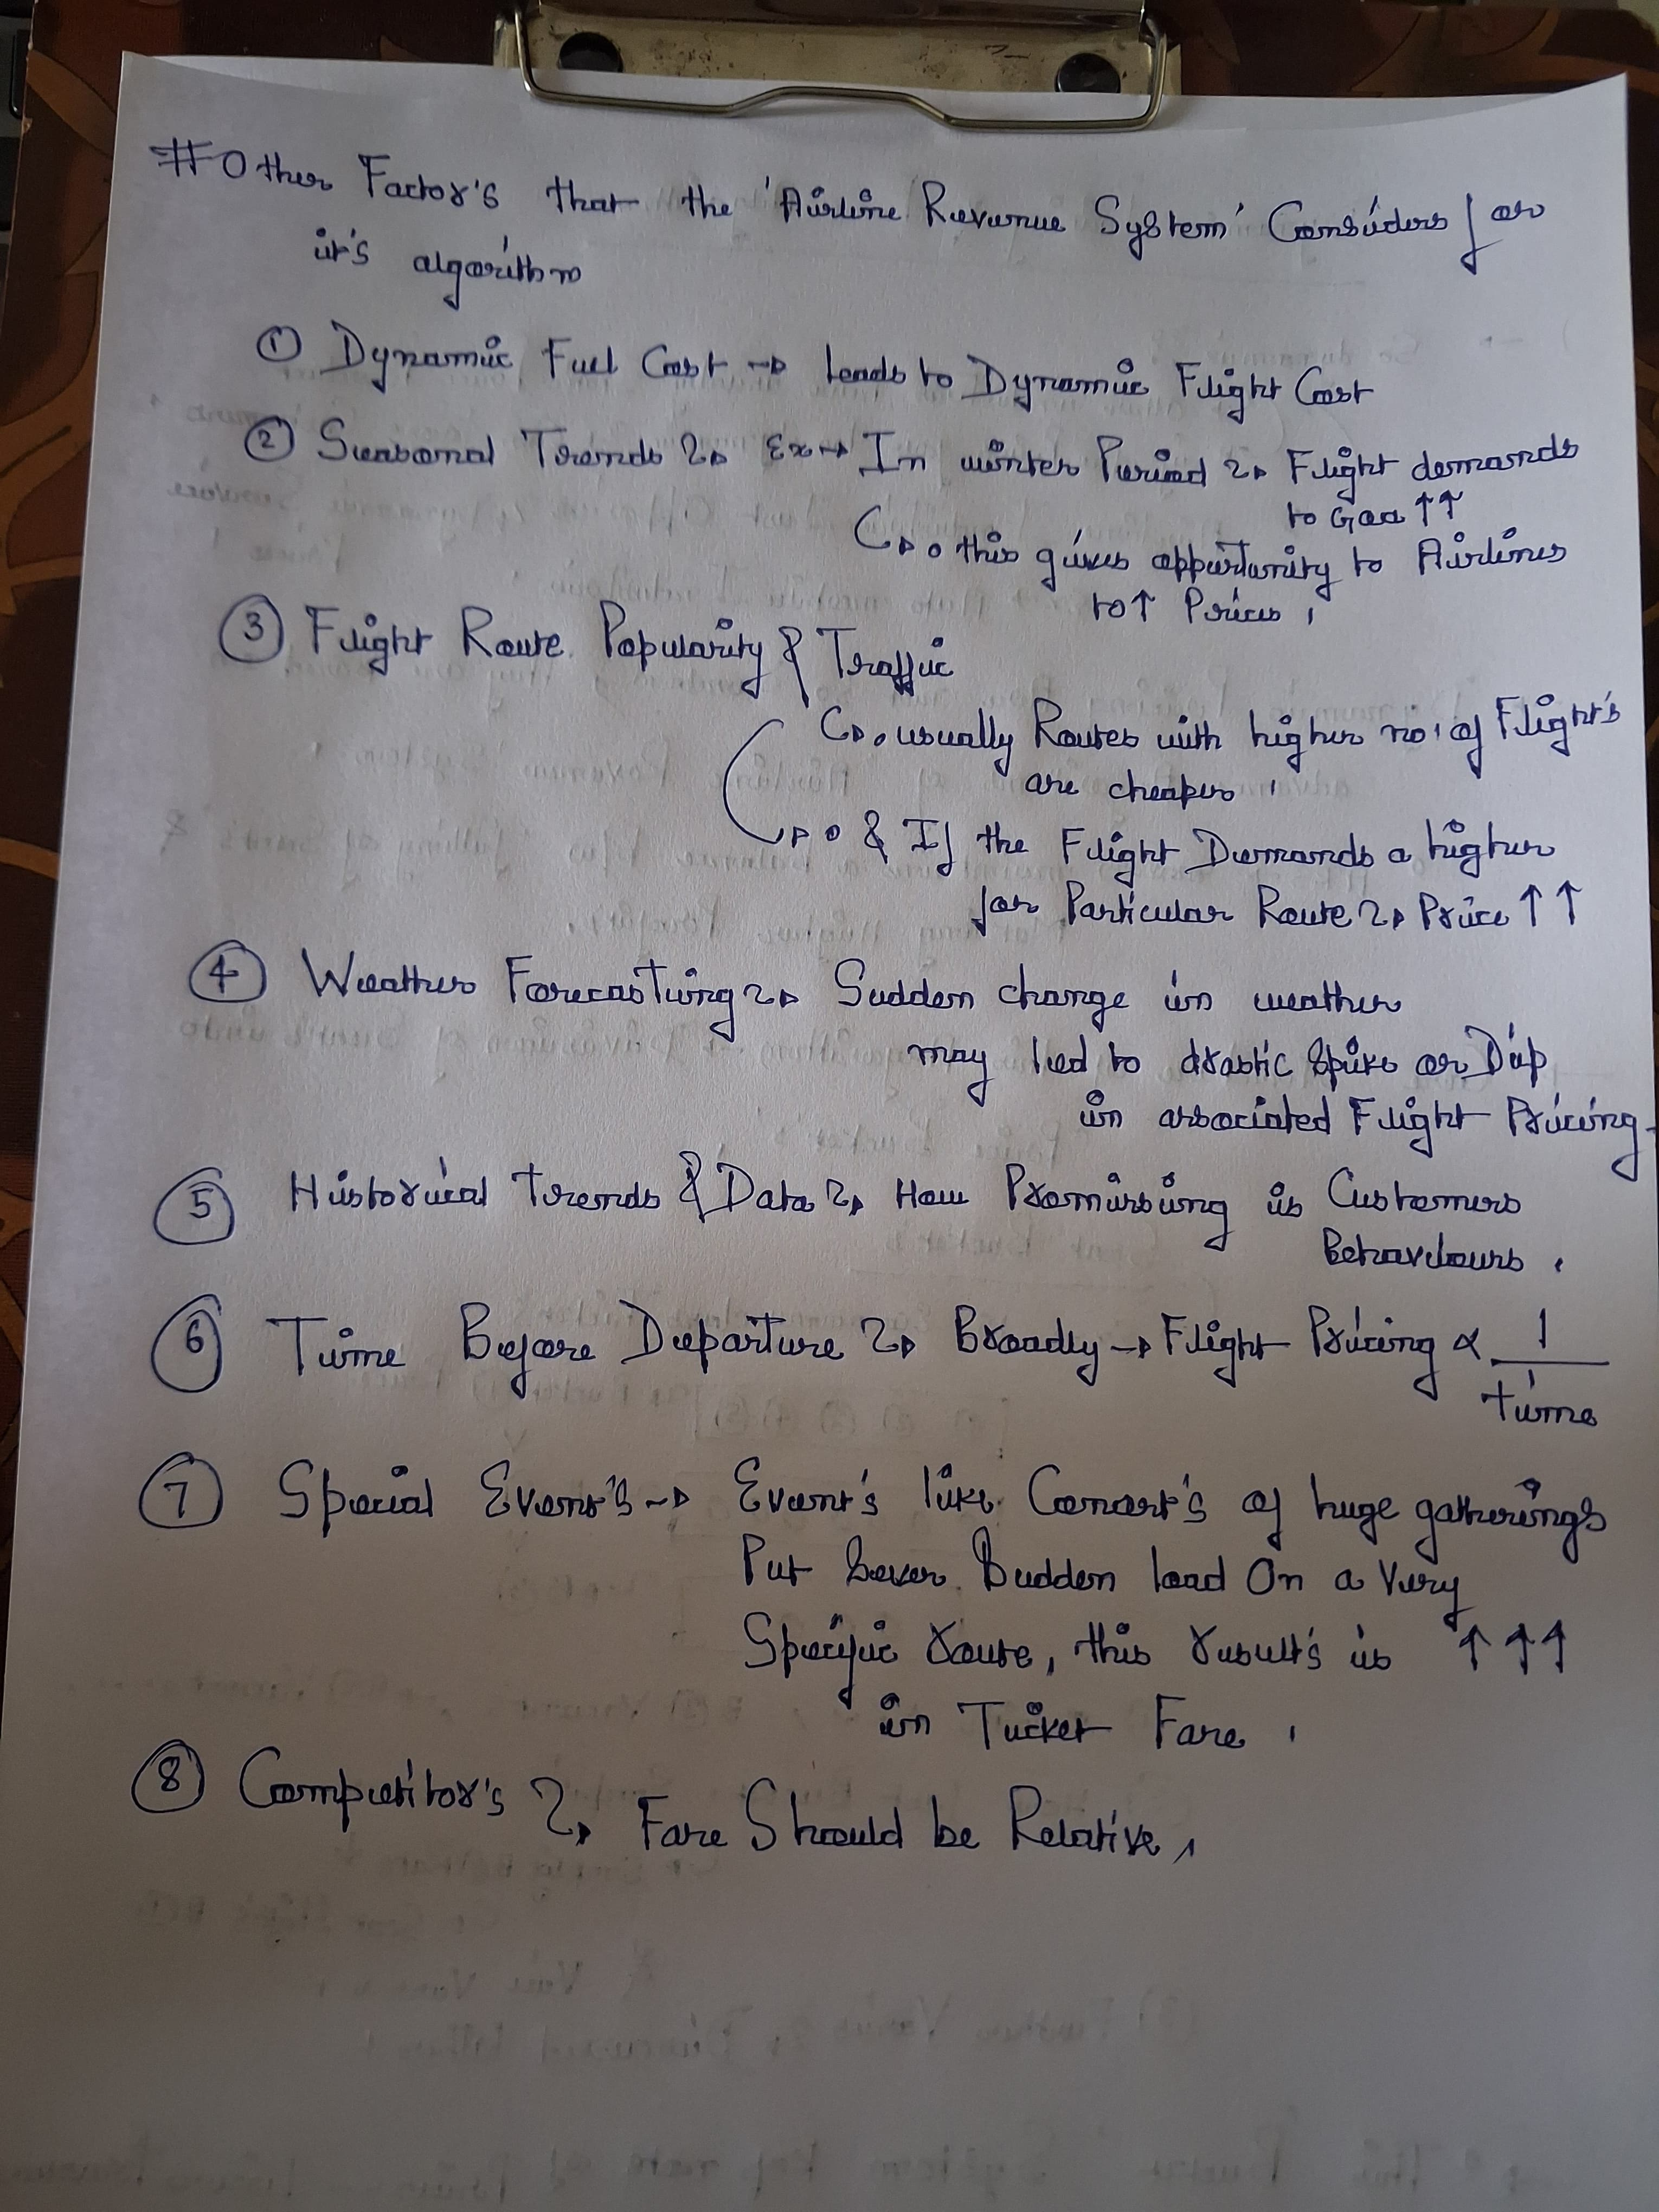 # Other Factor's that the 'Airline Revenue System' Considers for
it's algorithm
① Dynamic Fuel Cost → leads to Dynamic Flight Cost
② Seasonal Trends → Ex → In winter Period → Flight demands
to Goa ↑↑
→ • this gives oppurtunity to Airlines
to ↑ Prices.
③ Flight Route Popularity & Traffic
→ • usually Routes with higher no. of Flight's
are cheaper.
→ • & If the Flight Demands a higher
for Particular Route → Price ↑↑
④ Weather Forecasting → Sudden change in weather
may led to drastic Spike or Dip
in associated Flight Pricing.
⑤ Historical trends & Data → How Promissing is Customers
Behaveiours.
⑥ Time Before Departure → Broadly → Flight Pricing ∝ 1
/ time
⑦ Special Event's → Event's like Concert's of huge gatherings
Put Sever Sudden load On a Very
Specific route, this result's is ↑↑↑
in Ticket Fare.
⑧ Competitor's → Fare Should be Relative.